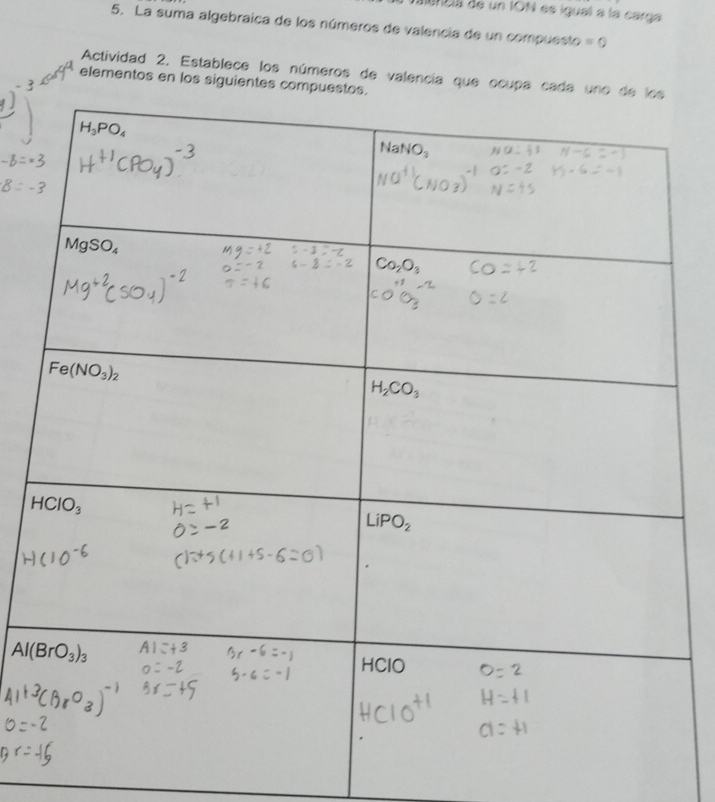 valencia de un ION es igual a la carga
5. La suma algebraica de los números de valencia de un compuesto = 0
Actividad 2. Establece los números de valencia que ocupa cada uno de los
elementos en los siguientes compuestos.
-3
-8=-3
8=-3
H₃PO₄
H⁺¹(PO₄)⁻³
NaNO₃
Na=+1 N-6=-1
Na⁺¹(NO₃)⁻¹ O=-2 N-6=-1
N=+5
MgSO₄
Mg=+2 S-8=-2
O=-2 6-8=-2
S=+6
Mg⁺²(SO₄)⁻²
Co₂O₃
CO=+2
CO⁺³O₃⁻² O=2
Fe(NO₃)₂
H₂CO₃
HClO₃
H=+1
O=-2
HClO⁻⁶ Cl=+5(+1+5-6=0)
LiPO₂
Al(BrO₃)₃
Al=+3 Br-6=-1
O=-2 5-6=-1
Br=+5
Al⁺³(BrO₃)⁻¹
O=-2
Br=+5
HClO
O=2
H=+1
HClO⁺¹
Cl=+1